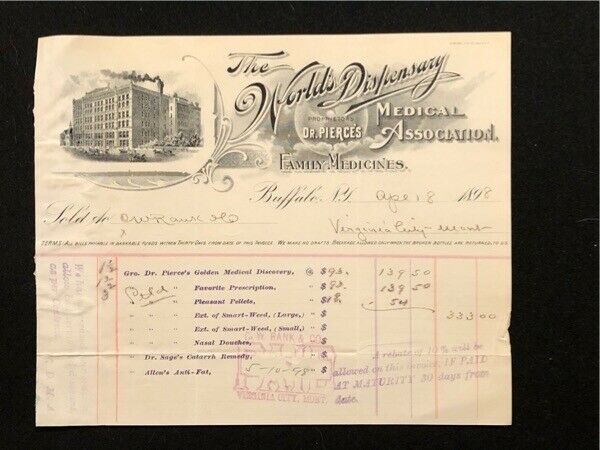 The
World's Dispensary
PROPRIETORS
DR. PIERCE'S
MEDICAL
ASSOCIATION.
FAMILY MEDICINES.
Buffalo, N.Y. Apr 18 1898
Sold to O W Rank & Co Virginia City Mont
TERMS: ALL BILLS PAYABLE IN BANKABLE FUNDS WITHIN THIRTY DAYS FROM DATE OF THIS INVOICE. WE MAKE NO DRAFTS. BREAKAGE ALLOWED ONLY WHEN THE BROKEN BOTTLES ARE RETURNED TO US.
1½ Gro. Dr. Pierce's Golden Medical Discovery, @ $93. 139 50
1½ " " " Favorite Prescription, " $93. 139 50
3 " " " Pleasant Pellets, " $18. 54
333 00
" " " Ext. of Smart-Weed, (Large,) " $
" " " Ext. of Smart-Weed, (Small,) " $
" " " Nasal Douches, " $
" Dr. Sage's Catarrh Remedy, " $
" Allen's Anti-Fat, " $
W. RANK & CO.
PAID
5-10-98
VIRGINIA CITY, MONT.
A rebate of 10% will be
allowed on this invoice, IF PAID
AT MATURITY 30 days from
date.